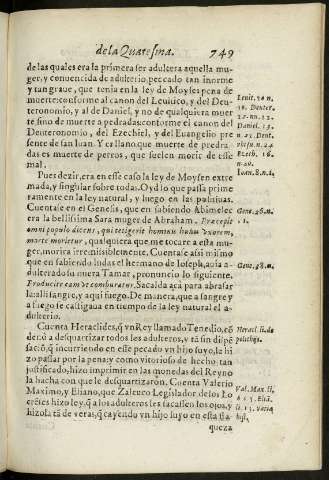 de la Quaresma. 749
de las quales era la primera ser adultera aquella mu-
ger, y conuencida de adulterio, peccado tan inorme
y tan graue, que tenia en la ley de Moysen pena de
muerte: conforme al canon del Leuitico, y del Deu-
teronomio, y al de Daniel, y no de qualquiera muer
te sino de muerte a pedradas: conforme el canon del
Deuteronomio, del Ezechiel, y del Euangelio pre
sente de san Iuan. Y es llano, que muerte de pedra-
das es muerte de perros, que suelen morir de esse
mal.
Pues dezir, era en esse caso la ley de Moysen extre
mada, y singular sobre todas. Oyd lo que passa prime
ramente en la ley natural, y luego en las positiuas.
Cuentase en el Genesis, que en sabiendo Abimelec
era la bellissima Sara muger de Abraham. Præcepit
omni populo dicens, qui tetigerit hominis huius vxorem,
morte morietur, qualquiera que me tocare a esta mu-
ger, morira irremissiblemente. Cuentase assi mismo
que en sabiendo Iudas el hermano de Ioseph, auia a-
dulterado su nuera Tamar, pronuncio lo siguiente.
Producite eam vt comburatur. Sacalda acá para abrasar
la: alli sangre, y aqui fuego. De manera, que a sangre y
a fuego se castigaua en tiempo de la ley natural el a-
dulterio.
Cuenta Heraclides, q̃ vn Rey llamado Tenedio, cõ
denò a desquartizar todos los adulteros, y tã sin dispẽ
saciõ, q̃ incurriendo en esse pecado vn hijo suyo, le hi
zo passar por la pena: y como vitorioso de hecho tan
justificado, hizo imprimir en las monedas del Reyno
la hacha con que le desquartizarõn. Cuenta Valerio
Maximo, y Eliano, que Zaleuco Legislador de los Lo
creses hizo ley, q̃ a los adulteros les sacassen los ojos, y
hizola tã de veras, q̃ cayendo vn hijo suyo en esta fla
queza
Leuit. 20. n.
10. Deuter.
22. nn. 22.
Daniel. 13.
n. 22. Deut.
vbi su. n. 24
Ezech. 16.
n. 40.
Ioan. 8. n. 1.
Gene. 26. n.
11.
Gene. 38. n.
Heracl. li. de
politijs.
Val. Max. li.
6. c. 5. Elia.
li. 13. variæ
hist.